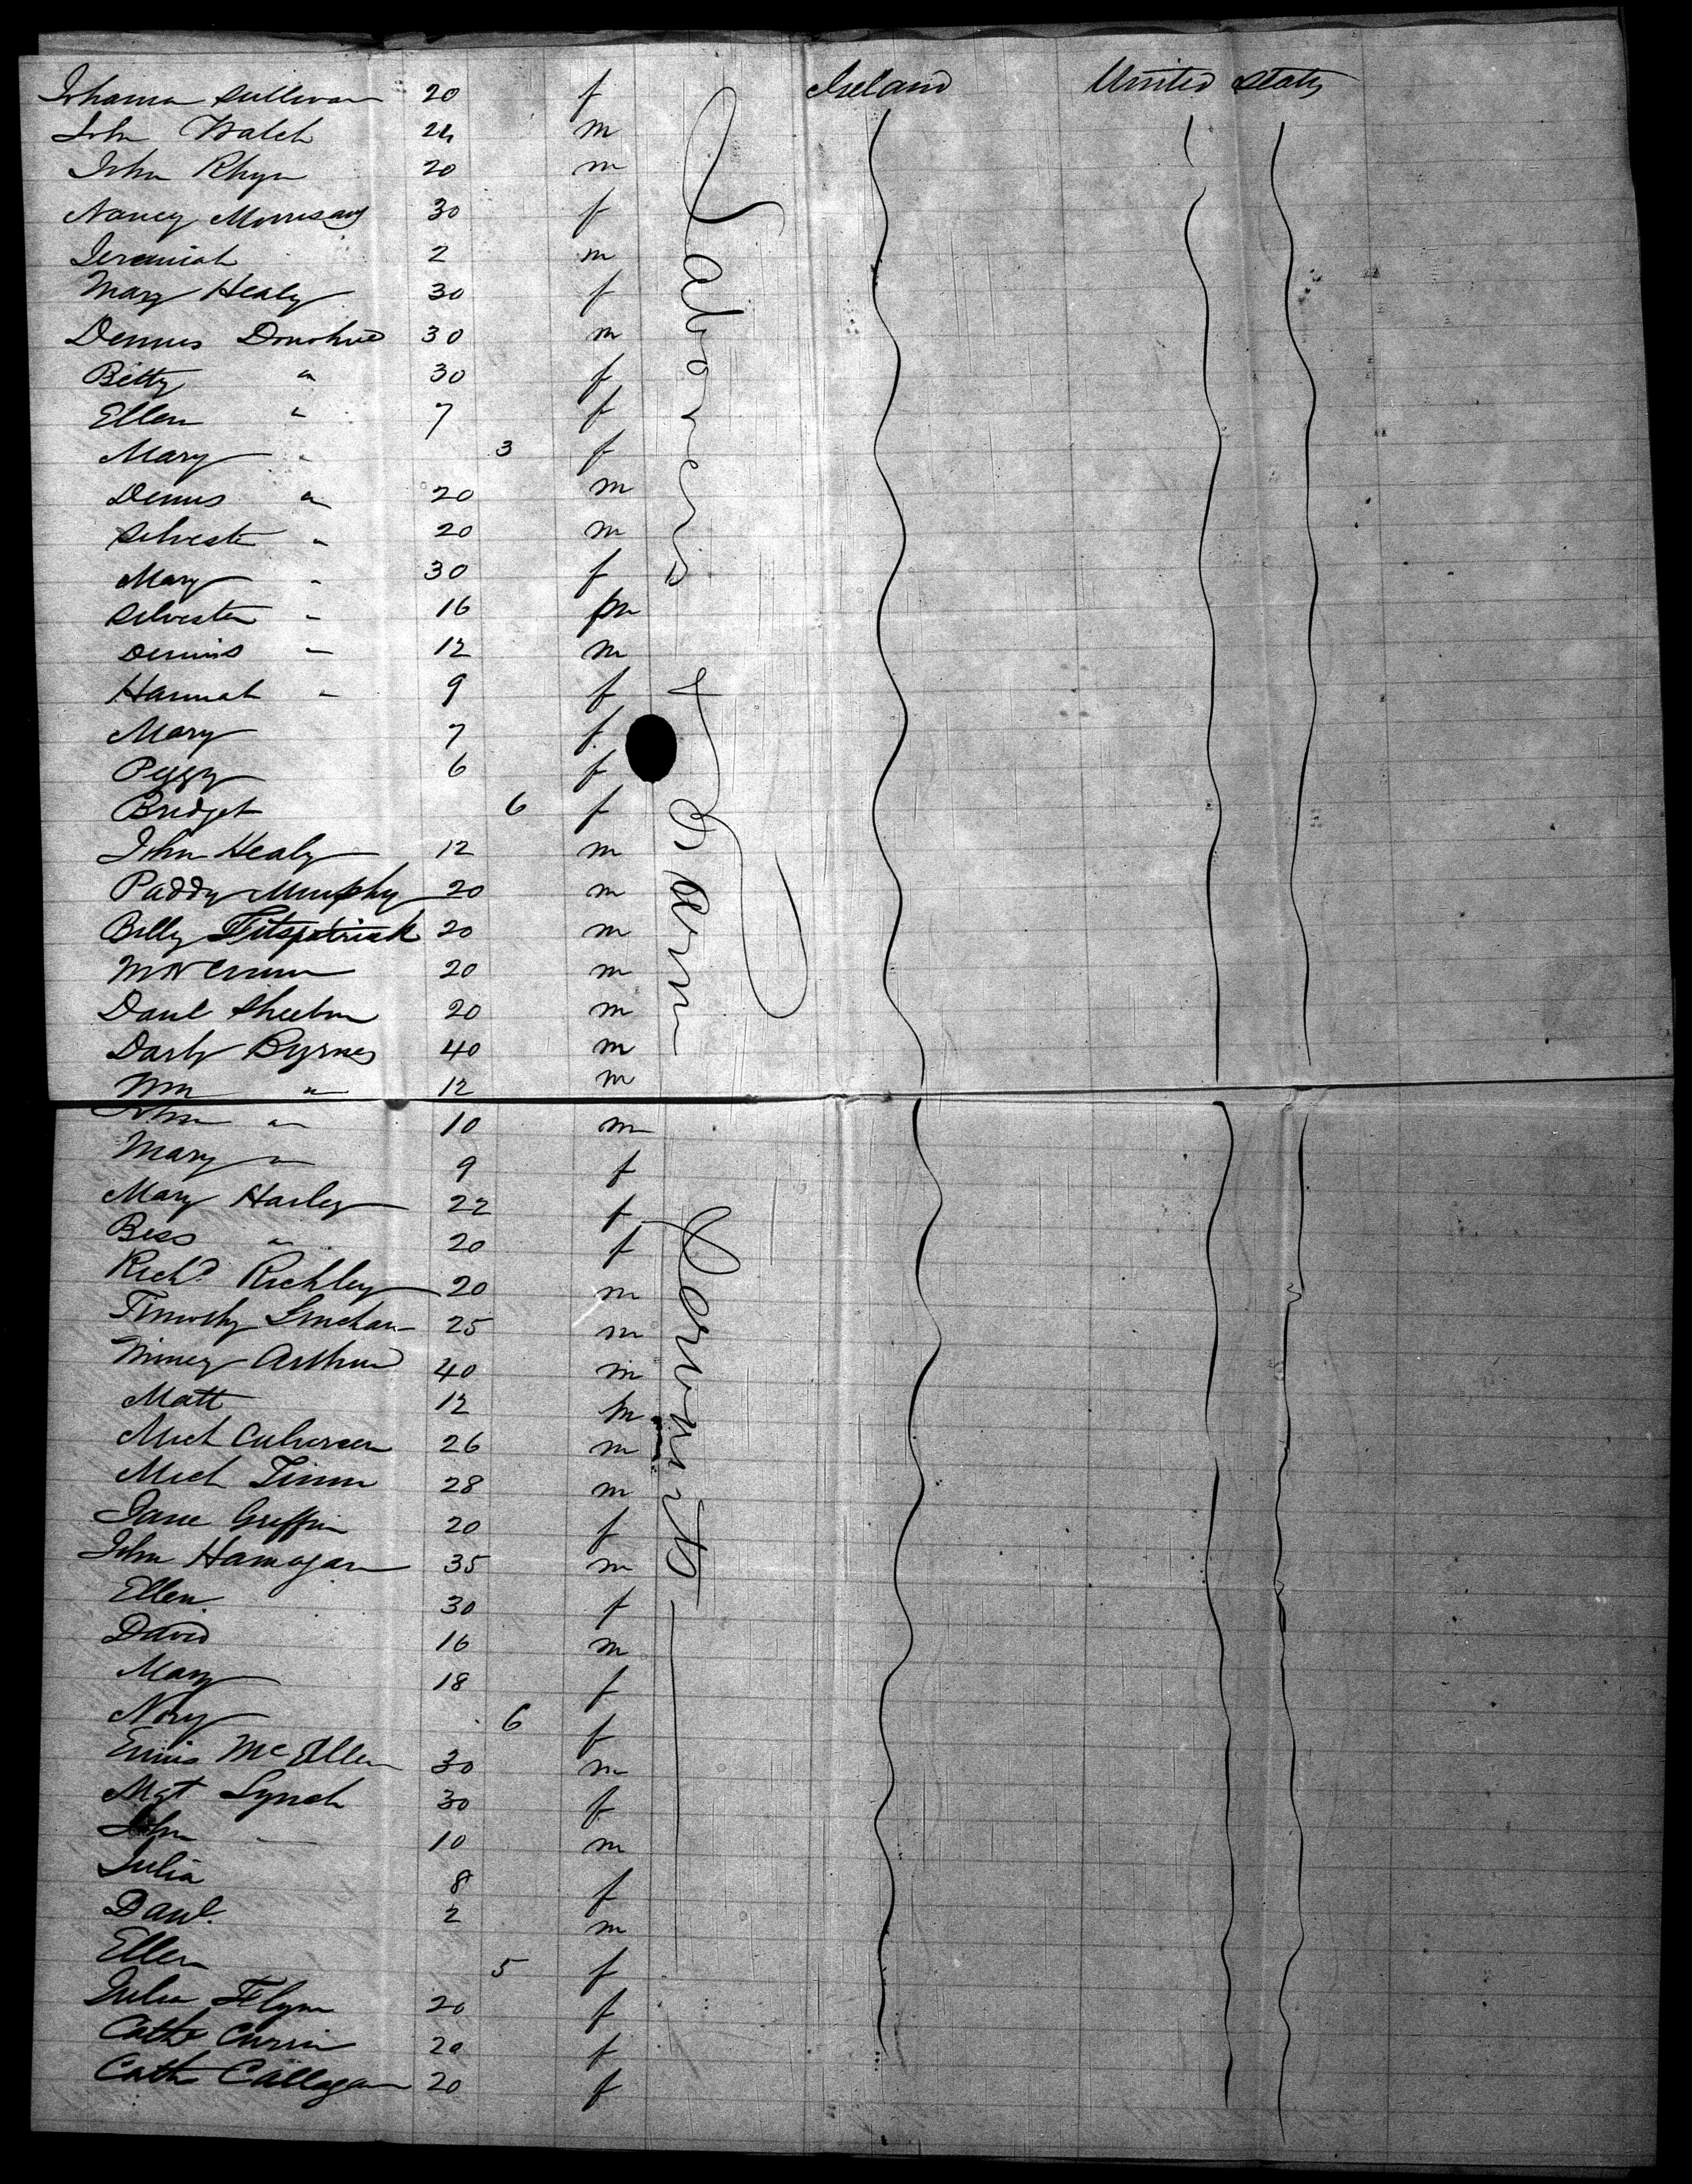 Johanna Sullivan 20 f Ireland United States
John Walch 24 m
John Rhyn 20 m
Nancy Morrisany 30 f
Jeremiah 2 m
Mary Healy 30 f
Dennis Donohue 30 m
Betty " 30 f
Ellen " 7 f
Mary " 3 f
Dennis " 20 m
Silvester " 20 m
Mary " 30 f
Silvester " 16 m
Dennis " 12 m
Hannah " 9 f
Mary 7 f
Peggy 6 f
Bridget 6 f
John Healy 12 m
Paddy Murphy 20 m
Billy Fitspatrick 20 m
20 m
Danl Sheehan 20 m
Darby Byrnes 40 m
Wm " 12 m
John " 10 m
Mary " 9 f
Mary Harley 22 f
Bess " 20 f
Richd Richley 20 m
Timothy Linehan 25 m
Arthur 40 m
Matt 12 m
Mich 26 m
Mich 28 m
Jane Griffin 20 f
John Hannogan 35 m
Ellen 30 f
David 16 m
Mary 18 f
Nory 6 f
Ennis McEllen 30 m
Mgt Lynch 30 f
John 10 m
Julia 8 f
Danl. 2 m
Ellen 5 f
Julia Flynn 20 f
Cath Currin 20 f
Cath Callagan 20 f
Laborers & Farm Servants